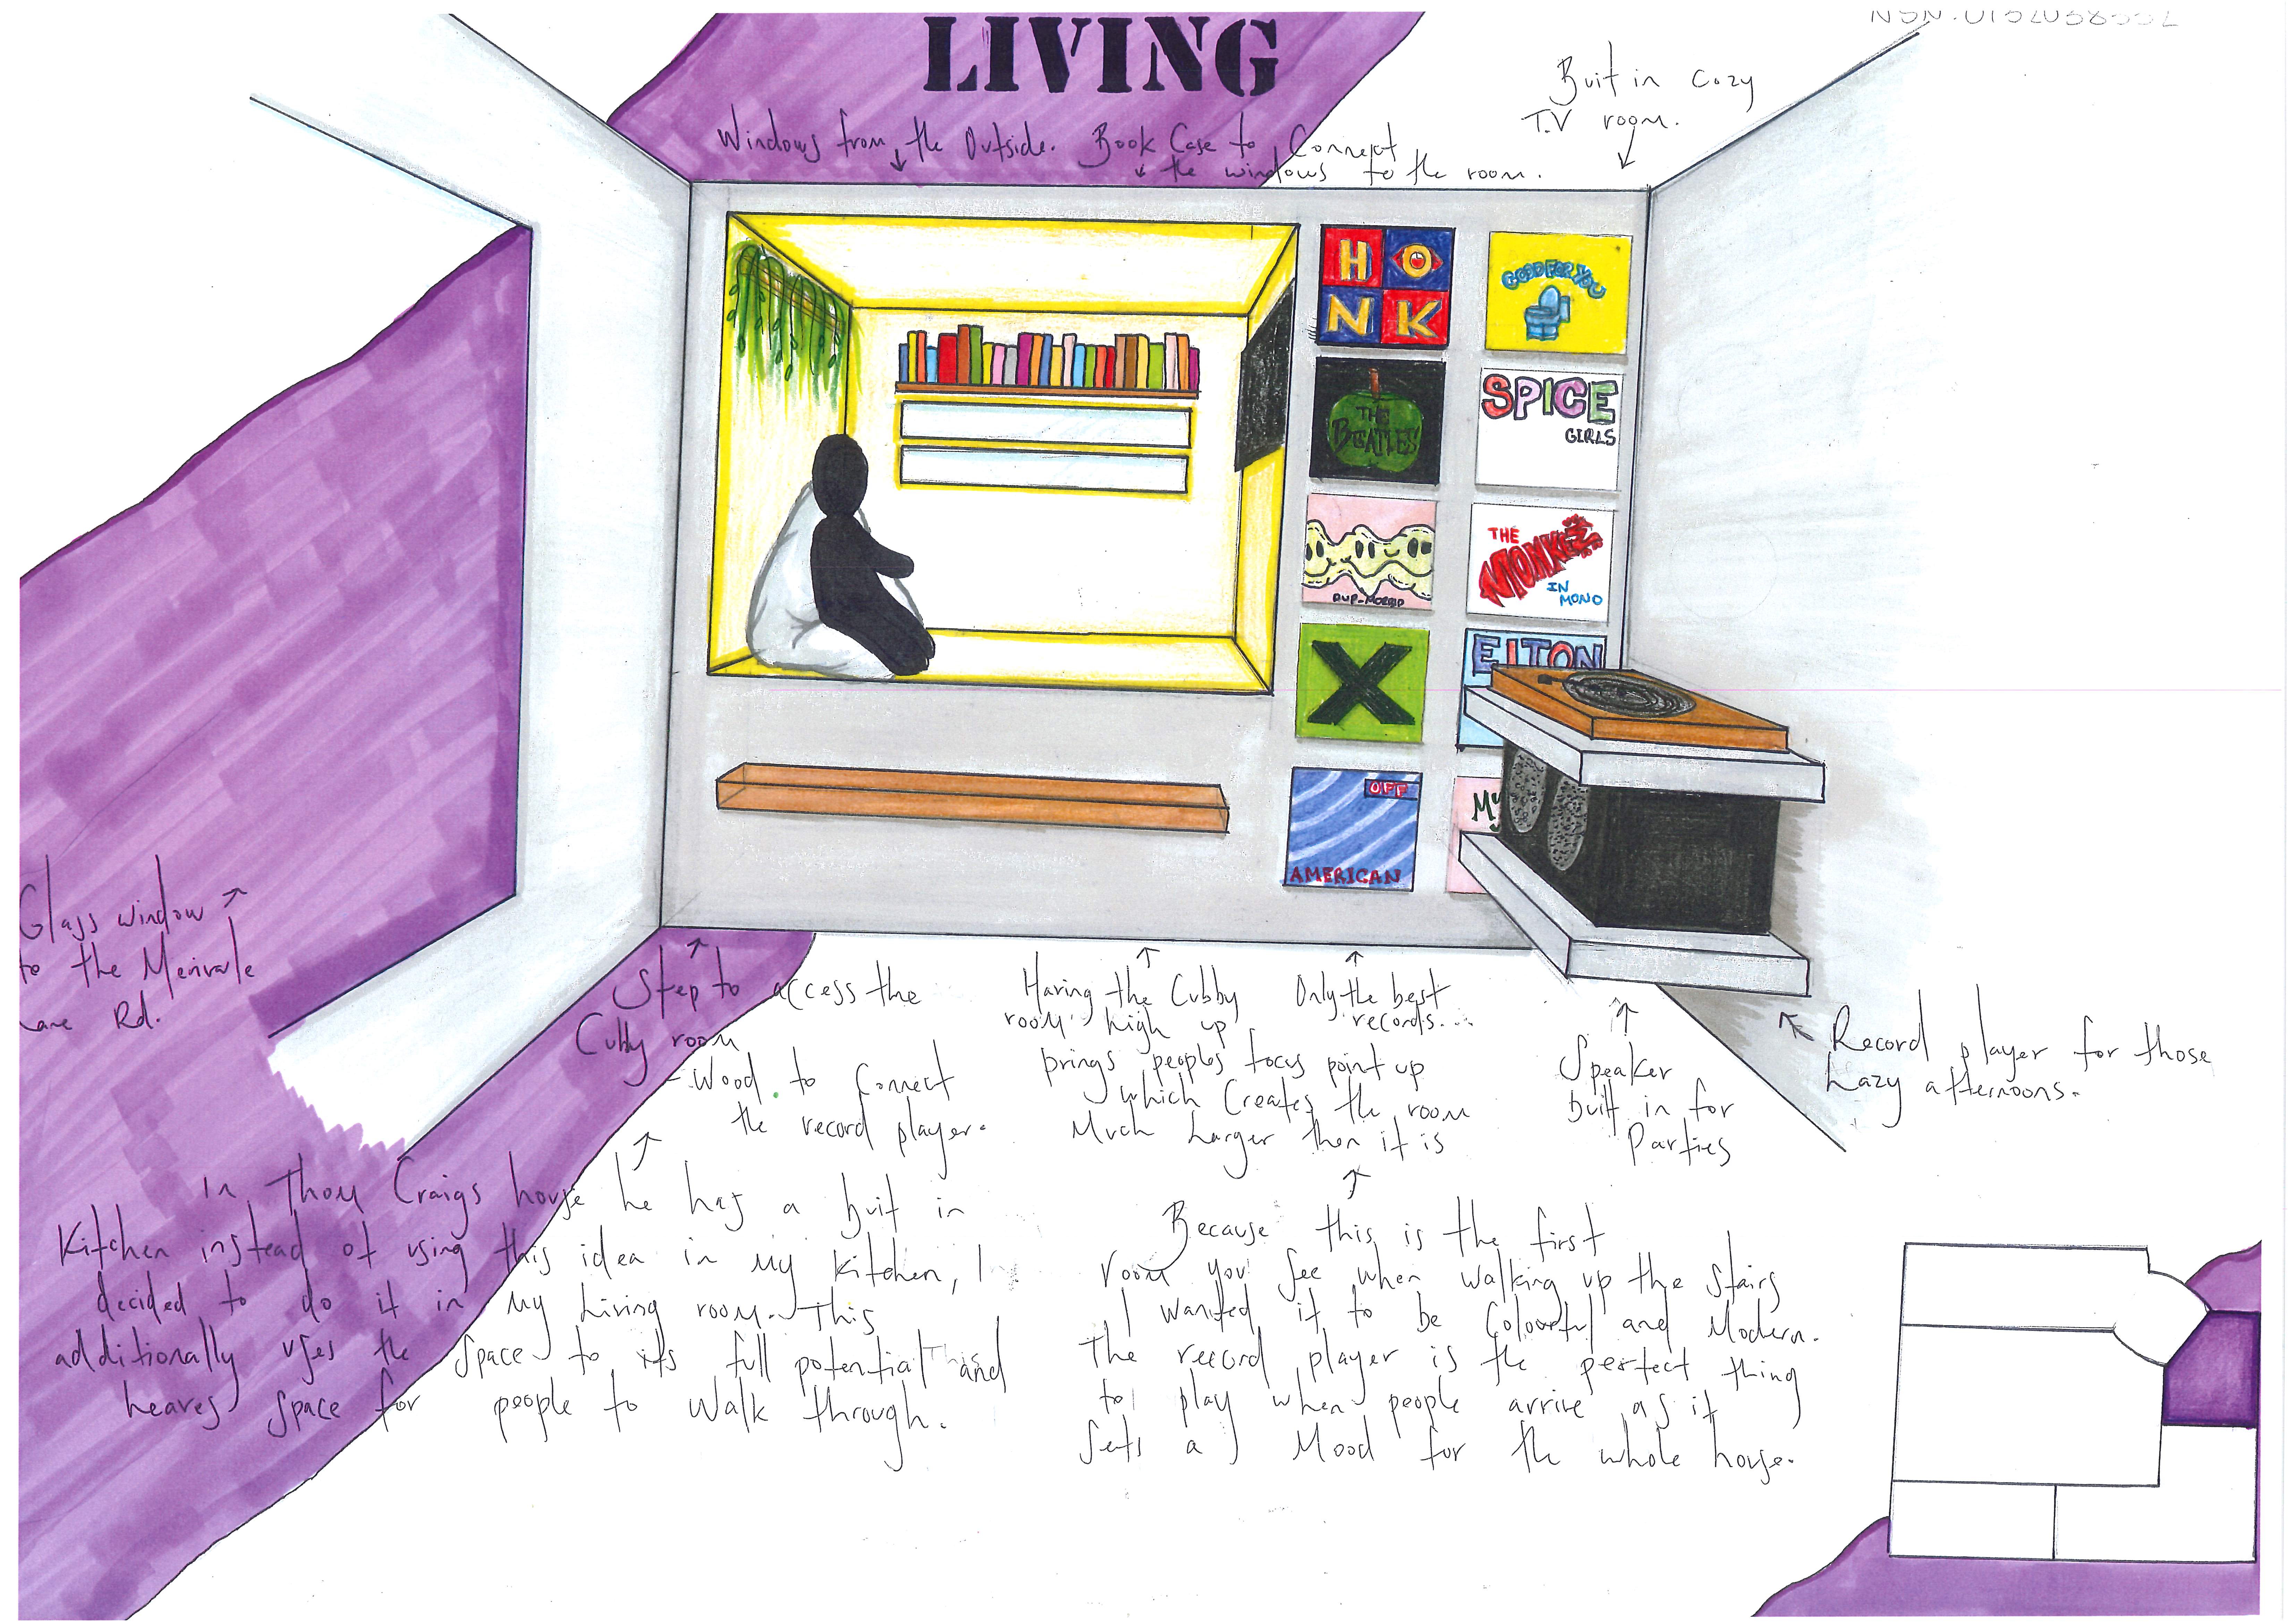 LIVING
Buit in cozy
T.V room.
Windows from the Outside.
Book Case to Connect
the windows to the room.
HONK
GOOD FOR YOU
THE
BEATLES
SPICE
GIRLS
THE
MONKEES
IN
MONO
X
ElTON
OFF
AMERICAN
My
Glass window
to the Merivale
Lane Rd.
Step to access the
Cubby room
- Wood to Connect
the record player.
Having the Cubby
room high up
brings peoples focus point up
which Creates the room
Much Larger then it is
Only the best
records...
Speaker
buit in for
Parties
Record player for those
Lazy afternoons.
In Thom Craigs house he has a buit in
Kitchen instead of using this idea in my kitchen, I
decided to do it in my Living room. This
additionally uses the space to its full potential and
Leaves space for people to walk through.
Because this is the first
room you see when walking up the stairs
I wanted it to be Colourful and Modern.
The record player is the perfect thing
to play when people arrive as it
sets a Mood for the whole house.